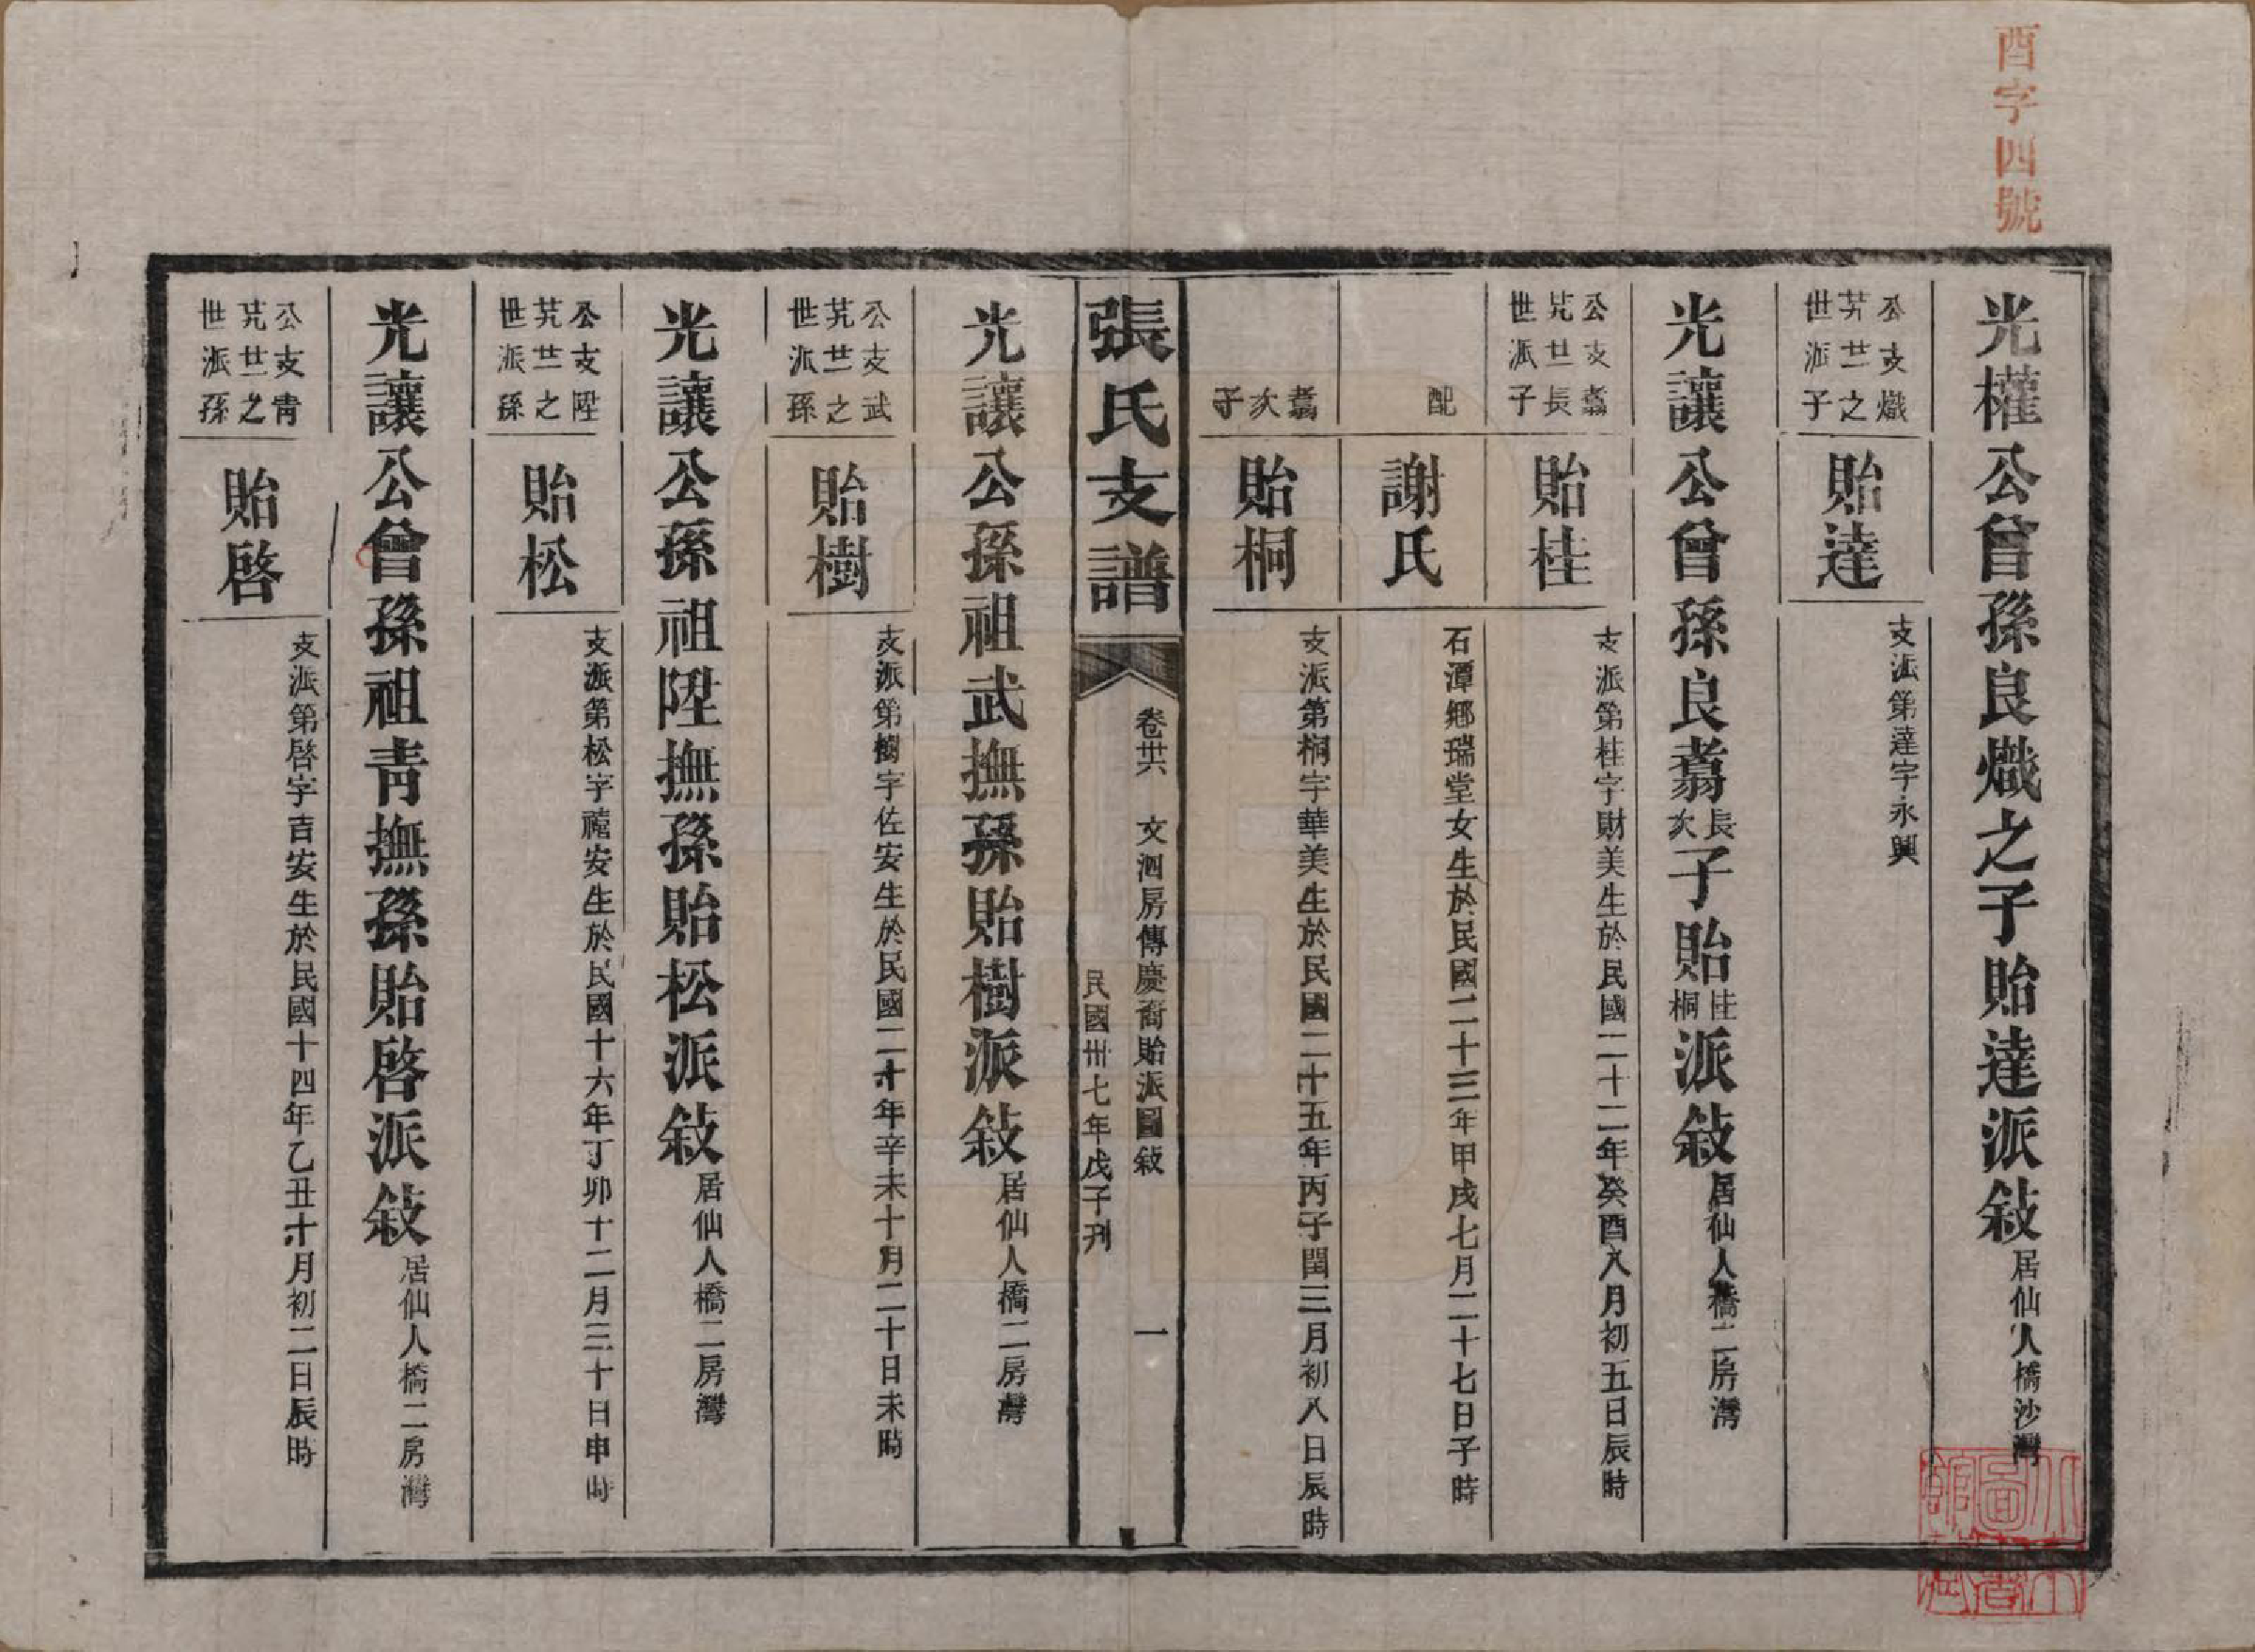 酉字四號
光權公曾孫良熾之子貽達派敍居仙人橋沙灣
公支熾
之子
世派
貽達
支派第達字永興
光讓公曾孫良翥長次子貽桂桐派敍居仙人橋二房灣
公支翥
世長
世派子
貽桂
支派第桂字財美生於民國二十二年癸酉八月初五日辰時
配
謝氏
石潭鄉瑞堂女生於民國二十三年甲戌七月二十七日子時
翥次子
貽桐
支派第桐字華美生於民國二十五年丙子閏三月初八日辰時
張氏支譜
卷卅六 文泗房傳慶裔貽派圖敍 一
民國卅七年戊子刋
光讓公孫祖武撫孫貽樹派敍居仙人橋二房灣
公支武
世之
世派孫
貽樹
支派第樹字佐安生於民國二十年辛未十月二十日未時
光讓公孫祖陞撫孫貽松派敍居仙人橋二房灣
公支陞
世之
世派孫
貽松
支派第松字禧安生於民國十六年丁卯十二月三十日申時
光讓公曾孫祖青撫孫貽啓派敍居仙人橋二房灣
公支青
世之
世派孫
貽啓
支派第啓字吉安生於民國十四年乙丑十月初二日辰時